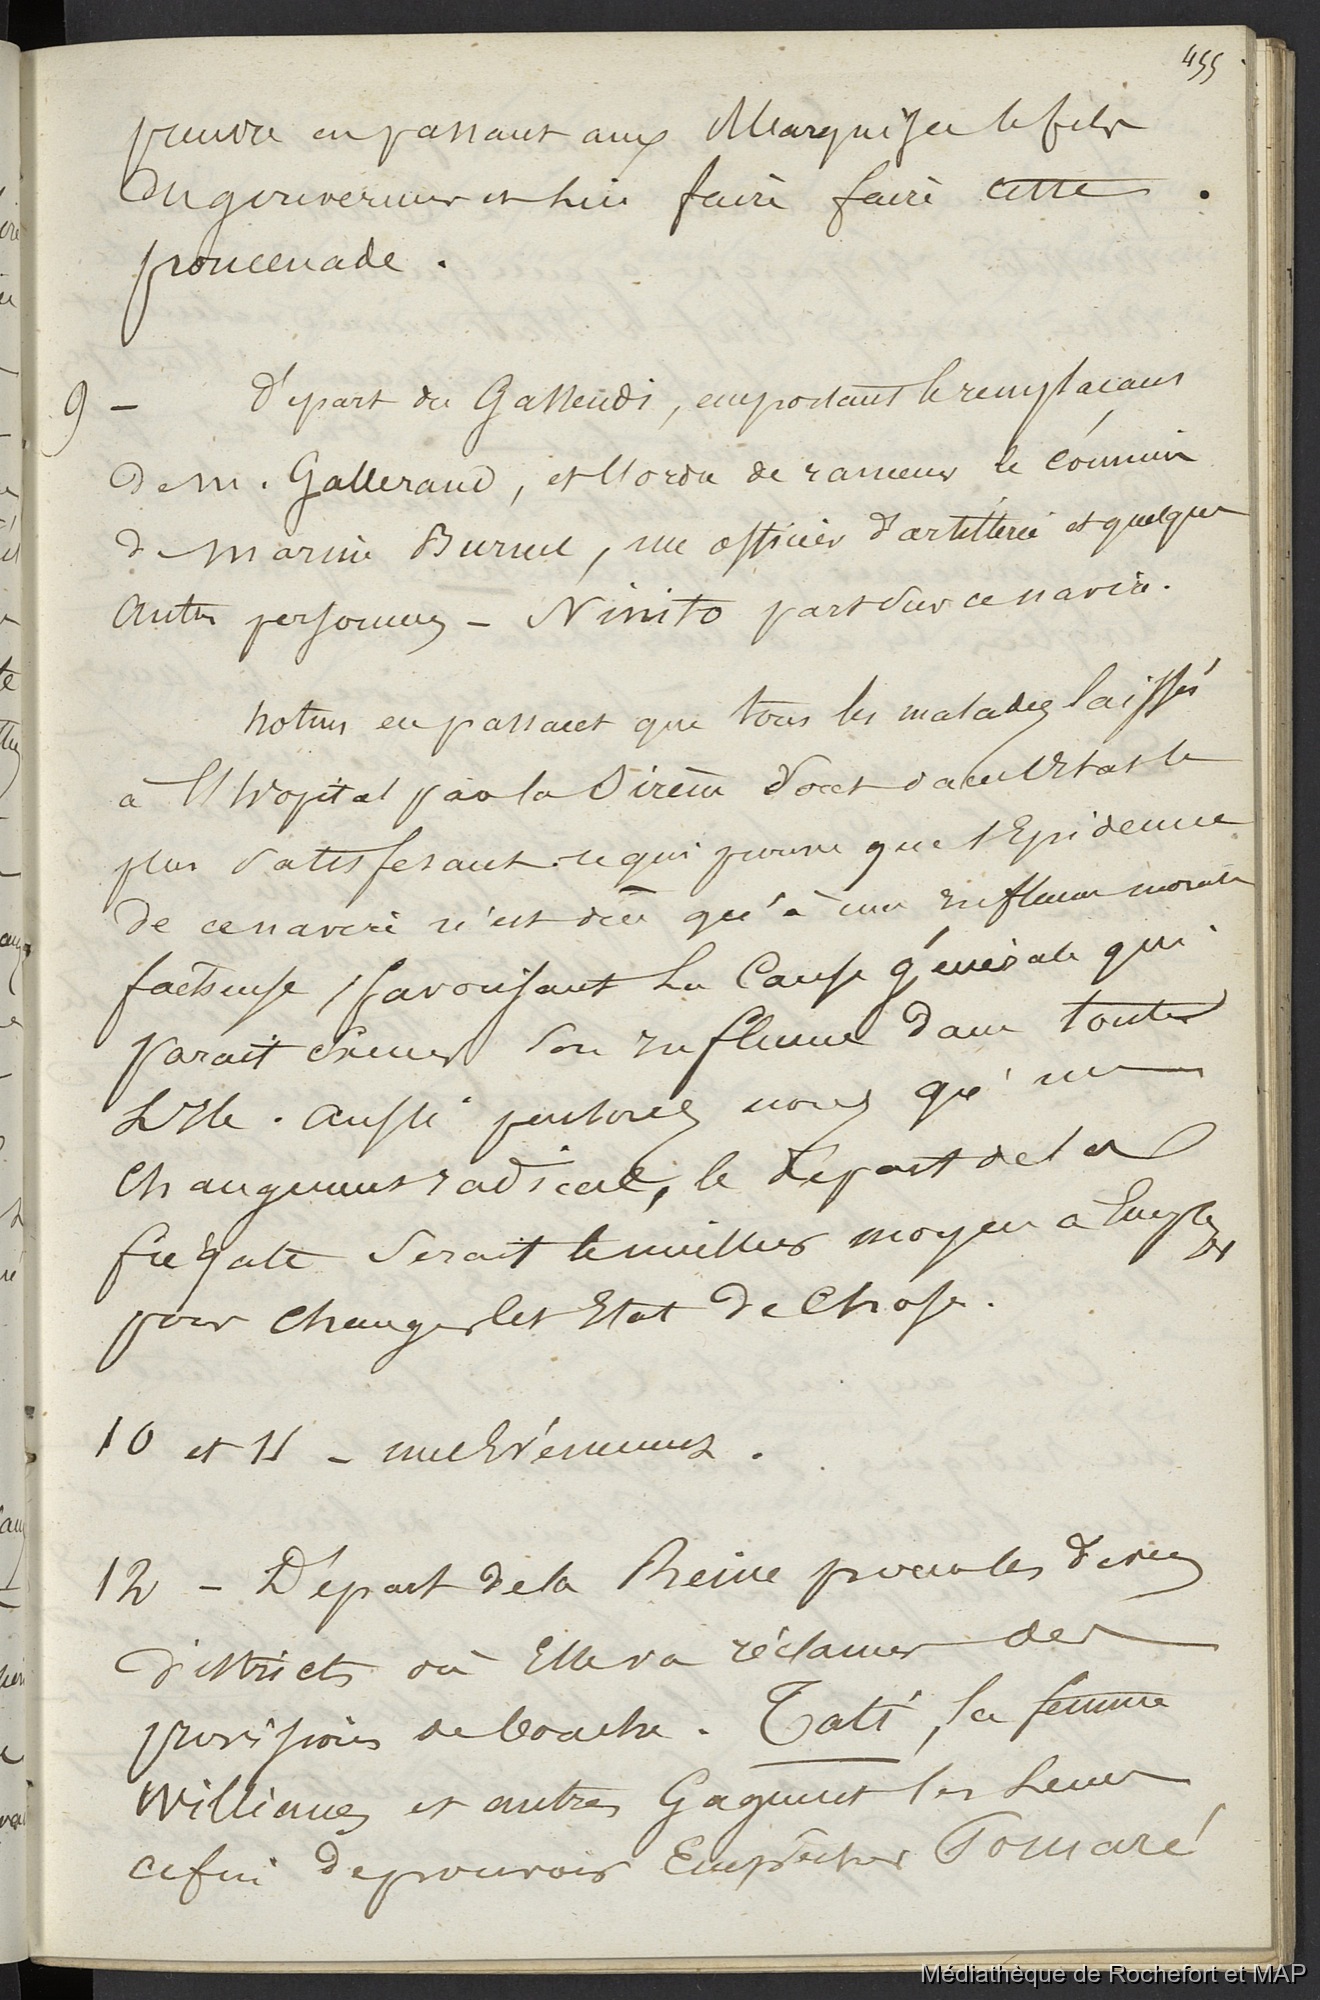 455
prendre en passant aux Marquises le fils
du gouverneur et lui faire faire cette
promenade.
9 - Départ du Gassendi, emportant le remplacant
de M. Gallerand, et l'ordre de ramener le commis
de marine Buruel, un officier d'artillerie et quelques
autres personnes - Ninito part sur ce navire.
Notons en passant que tous les malades laissés
à l'Hopital par la Sirène sont dans l'Etat le
plus satisfesant. ce qui prouve que l'Epidemie
de ce navire n'est dûe qu'à une Influence morale
facheuse, favorisant la Cause générale qui
parait exercer son Influence dans toute
L'Ile. Aussi pensons nous qu'un
changement radical, le départ de la
frégate serait le meilleur moyen a Employer
pour changer cet Etat de chose.
10 et 11 - nul Evénement.
12 - Départ de la Reine pour les divers
districts où Elle va réclamer des
provisions de bouche. Tati, la femme
Williams et autres Gagnent les leurs
afin de pouvoir Empêcher Pomaré
Médiathèque de Rochefort et MAP